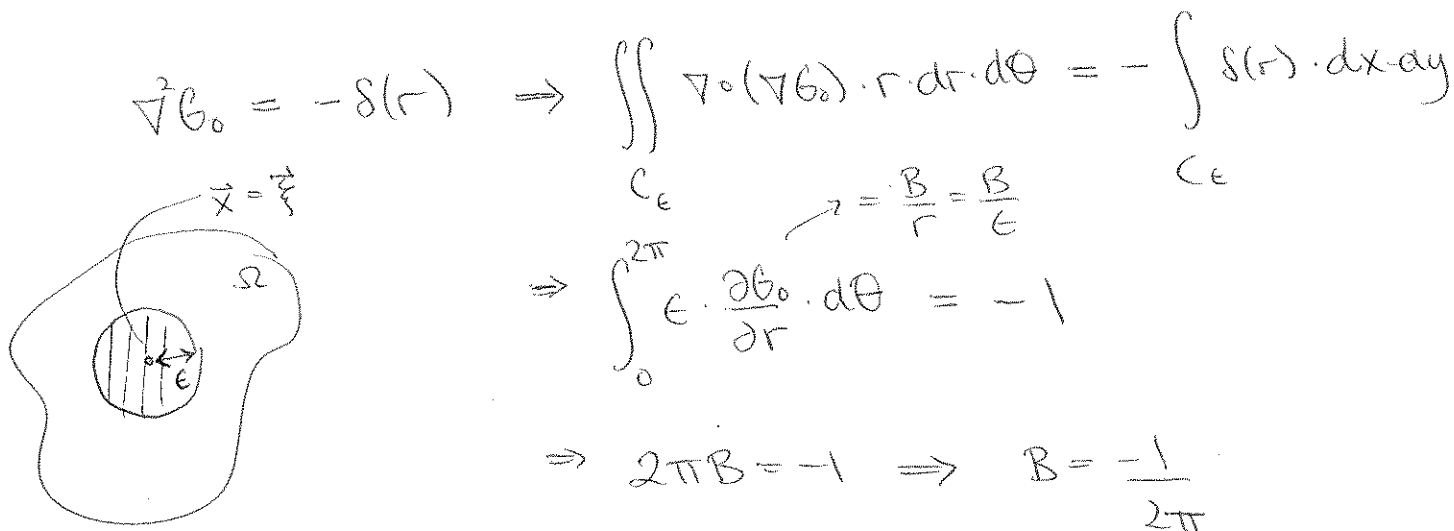 ∇²G₀ = -δ(r) ⇒ ∬_{C_ε} ∇∘(∇G₀)·r·dr·dθ = -∫_{C_ε} δ(r)·dx·dy
x⃗ = ξ⃗
= B/r = B/ε
Ω
⇒ ∫₀^{2π} ε·∂G₀/∂r·dθ = -1
ε
⇒ 2πB = -1 ⇒ B = -1/2π